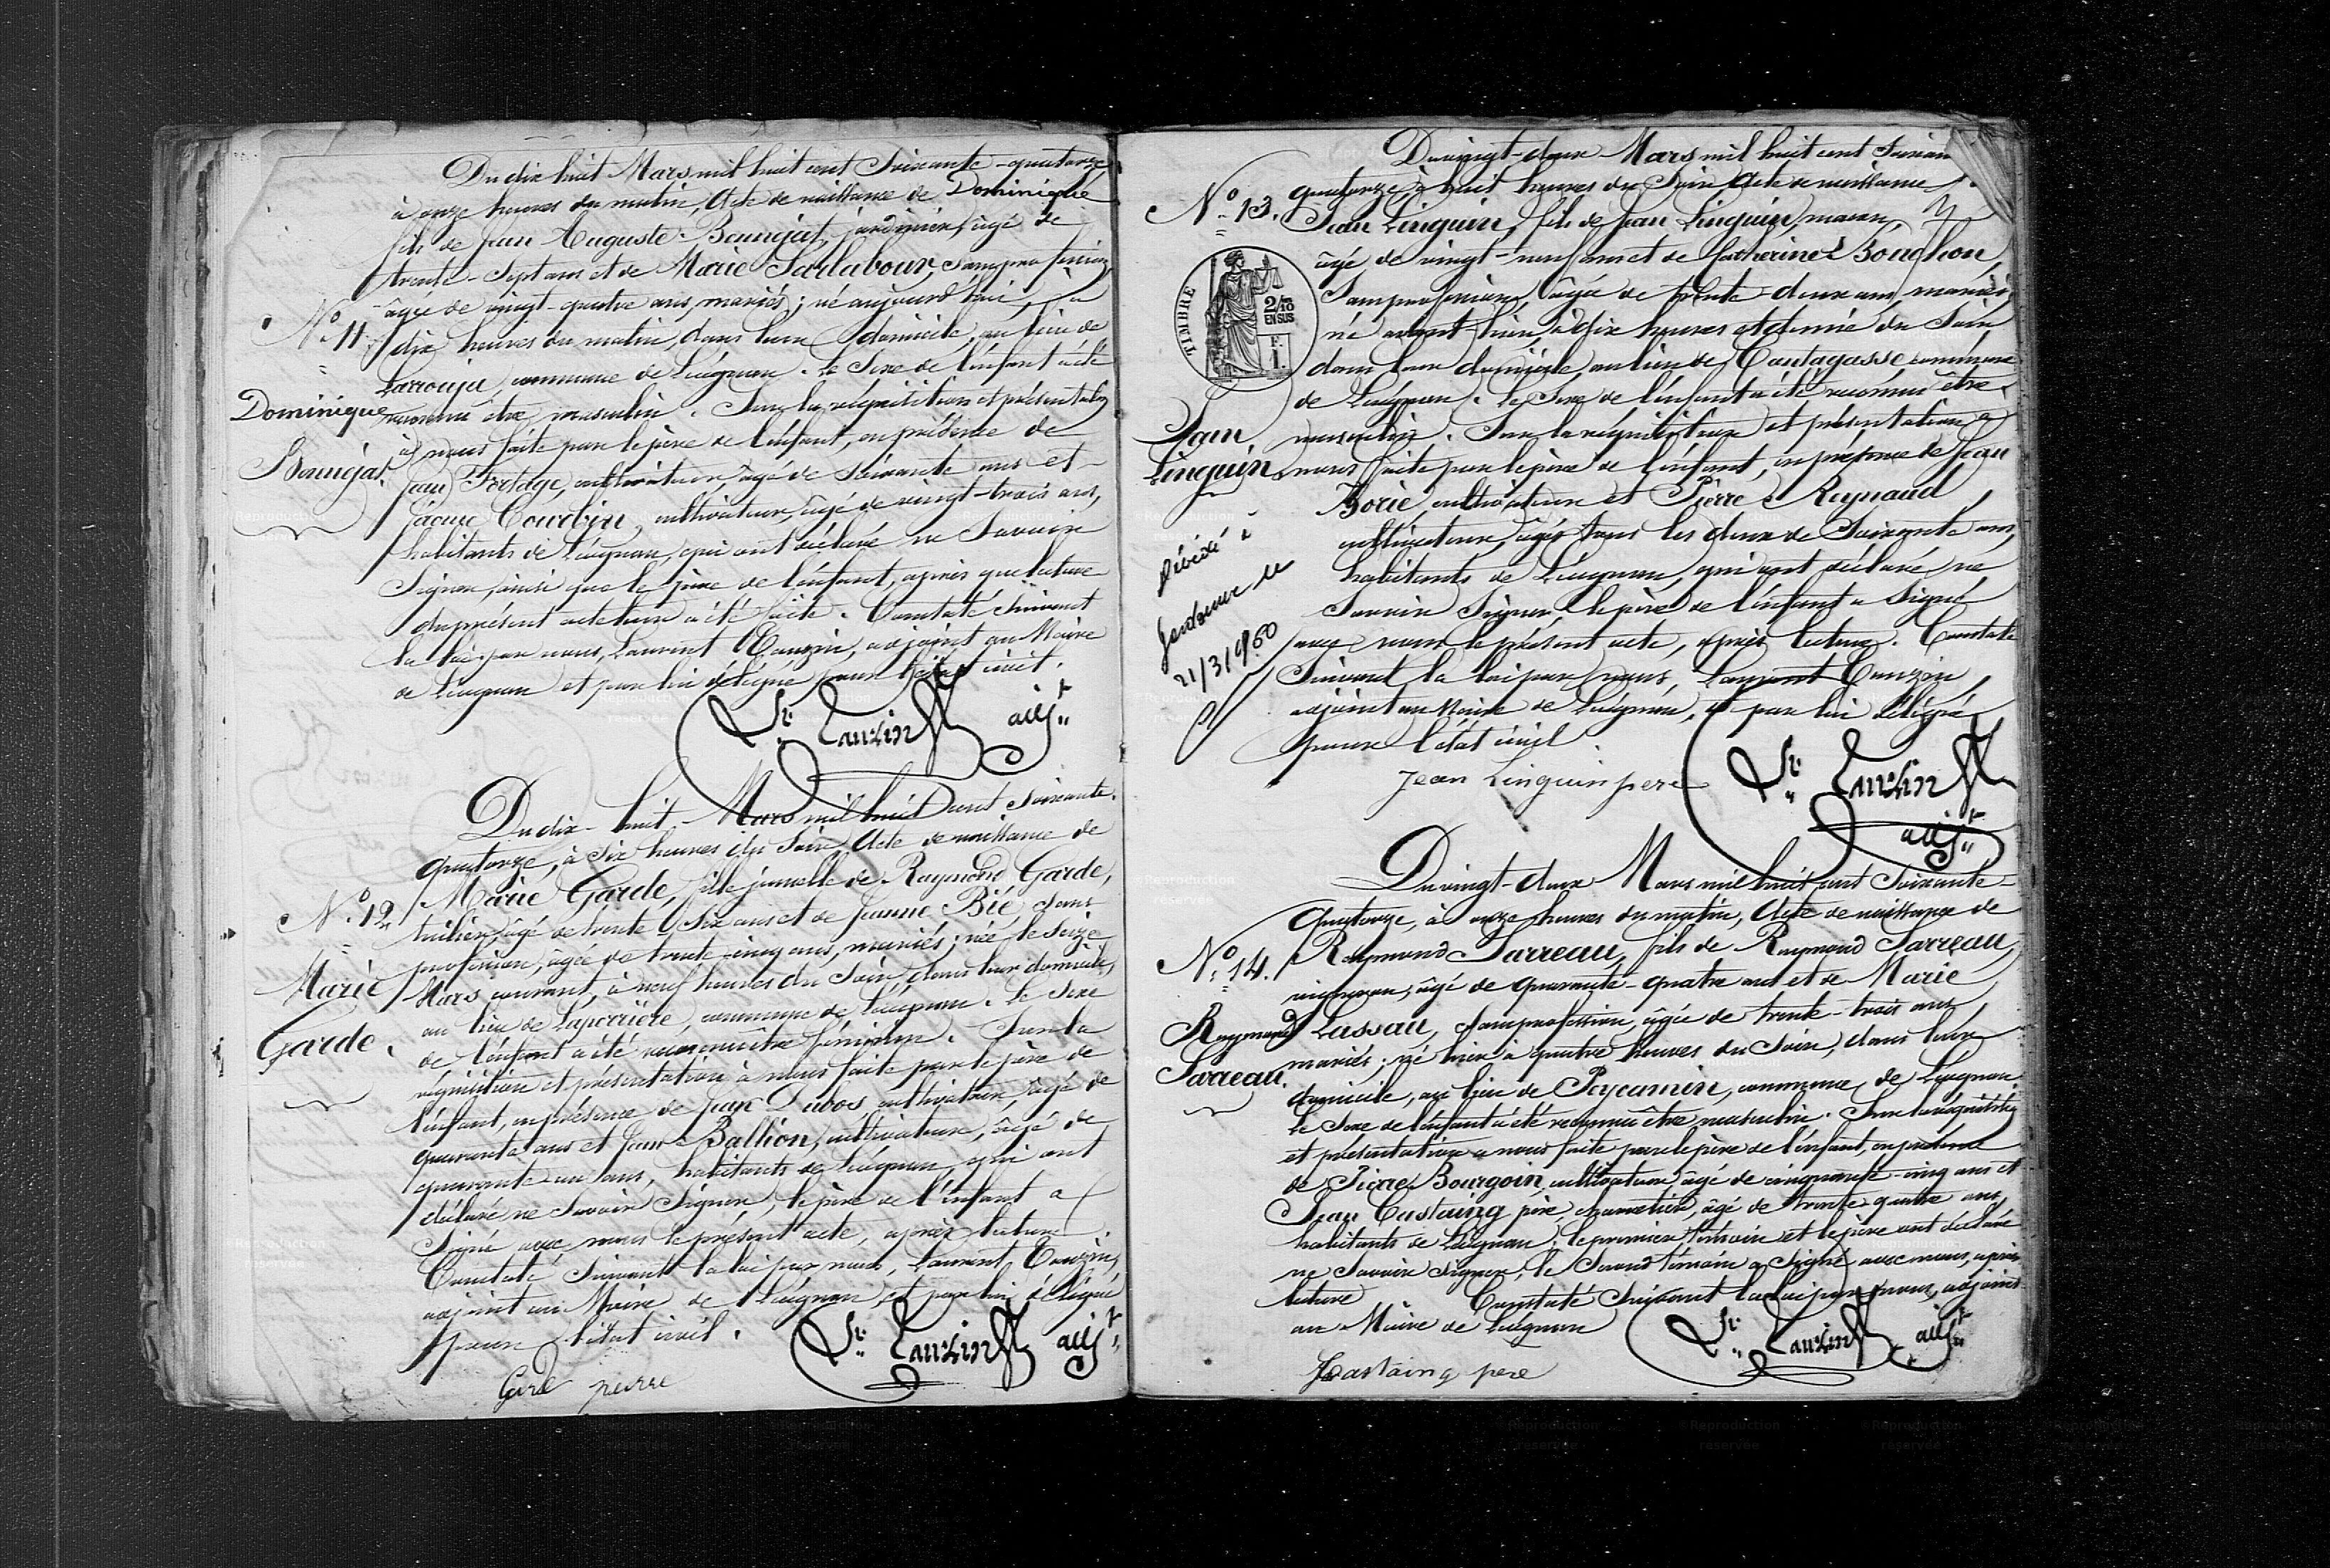 Du dix huit Mars mil huit cent Soixante-quatorze
à onze heures du matin, Acte de naissance de Dominique
fils de Jean Auguste Bounéjat, jardinier, âgé de
trente-sept ans et de Marie Sarlabour, sans profession,
âgée de vingt-quatre ans, mariés; né aujourd'hui, à
N° 11
dix heures du matin, dans leur domicile, au lieu de
Larrouja, commune de Léognan. Le Sexe de l'enfant a été
Dominique
Bounéjat.
reconnu être masculin. Sur la réquisition et présentation
à nous faite par le père de l'enfant, en présence de
Jean Fortage, cultivateur, âgé de Soixante ans et
Jacque Courbin, cultivateur, âgé de vingt-trois ans,
habitants de Léognan, qui ont déclaré ne Savoir
Signer, ainsi que le père de l'enfant, après que lecture
du présent acte leur a été faite. Constaté Suivant
la loi par nous, Laurent Cauzin, adjoint au Maire
de Léognan et par lui délégué pour l'état civil.
Cauzin adjt
Du dix-huit Mars mil huit cent Soixante-
quatorze, à Six heures du Soir, Acte de naissance de
Marie Garde, fille jumelle de Raymond Garde,
N° 12
tuilier, âgé de trente Six ans et de Jeanne Bié, Sans
profession, âgée de trente-cinq ans, mariés; née le Seize
Marie
Garde.
Mars courant, à neuf heures du Soir, dans leur domicile,
au lieu de Laperrière, commune de Léognan. Le Sexe
de l'enfant a été reconnu être féminin. Sur la
réquisition et présentation à nous faite par le père de
l'enfant, en présence de Jean Dubos, cultivateur, âgé de
quarante ans et Jean Ballion, cultivateur, âgé de
quarante un ans, habitants de Léognan, qui ont
déclaré ne Savoir Signer, le père de l'enfant a
Signé avec nous le présent acte, après lecture.
Constaté Suivant la loi par nous, Laurent Cauzin,
adjoint au Maire de Léognan, et par lui délégué
pour l'état civil.
Cauzin adjt
Du vingt-deux Mars mil huit cent
quatorze, à huit heures du Soir, Acte de naissance
N° 13.
Jean Linguin, fils de Jean Linguin, maçon,
âgé de vingt-neuf ans et de Catherine Bouchon,
Sans profession, âgée de trente deux ans, mariés,
né avant hier, à dix heures et demie du Soir
TIMBRE
2/10
EN SUS
F.
1.
dans leur domicile, au lieu de Cantagasse commune
de Léognan. Le Sexe de l'enfant a été reconnu être
Jean
Linguin
masculin. Sur la réquisition et présentation à
nous faite par le père de l'enfant, en présence de Jean
Borie, cultivateur et Pierre Reynaud,
cultivateur, âgés tous les deux de Soixante ans,
habitants de Léognan, qui ont déclaré ne
Savoir Signer, le père de l'enfant a Signé
avec nous le présent acte, après lecture. Constaté
Décédé à
le
21/3/1960
Suivant la loi par nous, Laurent Cauzin,
adjoint au Maire de Léognan, et par lui délégué
pour l'état civil.
Jean Linguin pere
Cauzin
adjt
Du vingt-deux Mars mil huit cent Soixante-
quatorze, à onze heures du matin, Acte de naissance de
N° 14.
Raymond Sarreau, fils de Raymond Sarreau,
vigneron, âgé de quarante-quatre ans et de Marie
Raymond
Sarreau.
Lassau, Sans profession, âgée de trente-trois ans,
mariés; né hier à quatre heures du Soir, dans leur
domicile, au lieu de Paycamin, commune de Léognan
Le Sexe de l'enfant a été reconnu être masculin. Sur la réquisition
et présentation à nous faite par le père de l'enfant, en présence
de Pierre Bourgoin, cultivateur, âgé de cinquante-cinq ans et
Jean Castaing père, charretier, âgé de trente-quatre ans,
habitants de Léognan; le premier témoin et le père ont déclaré
ne Savoir Signer, le Second témoin a Signé avec nous, après
lecture Constaté Suivant la loi par nous, adjoint
au Maire de Léognan
Cauzin adjt
Castaing pere